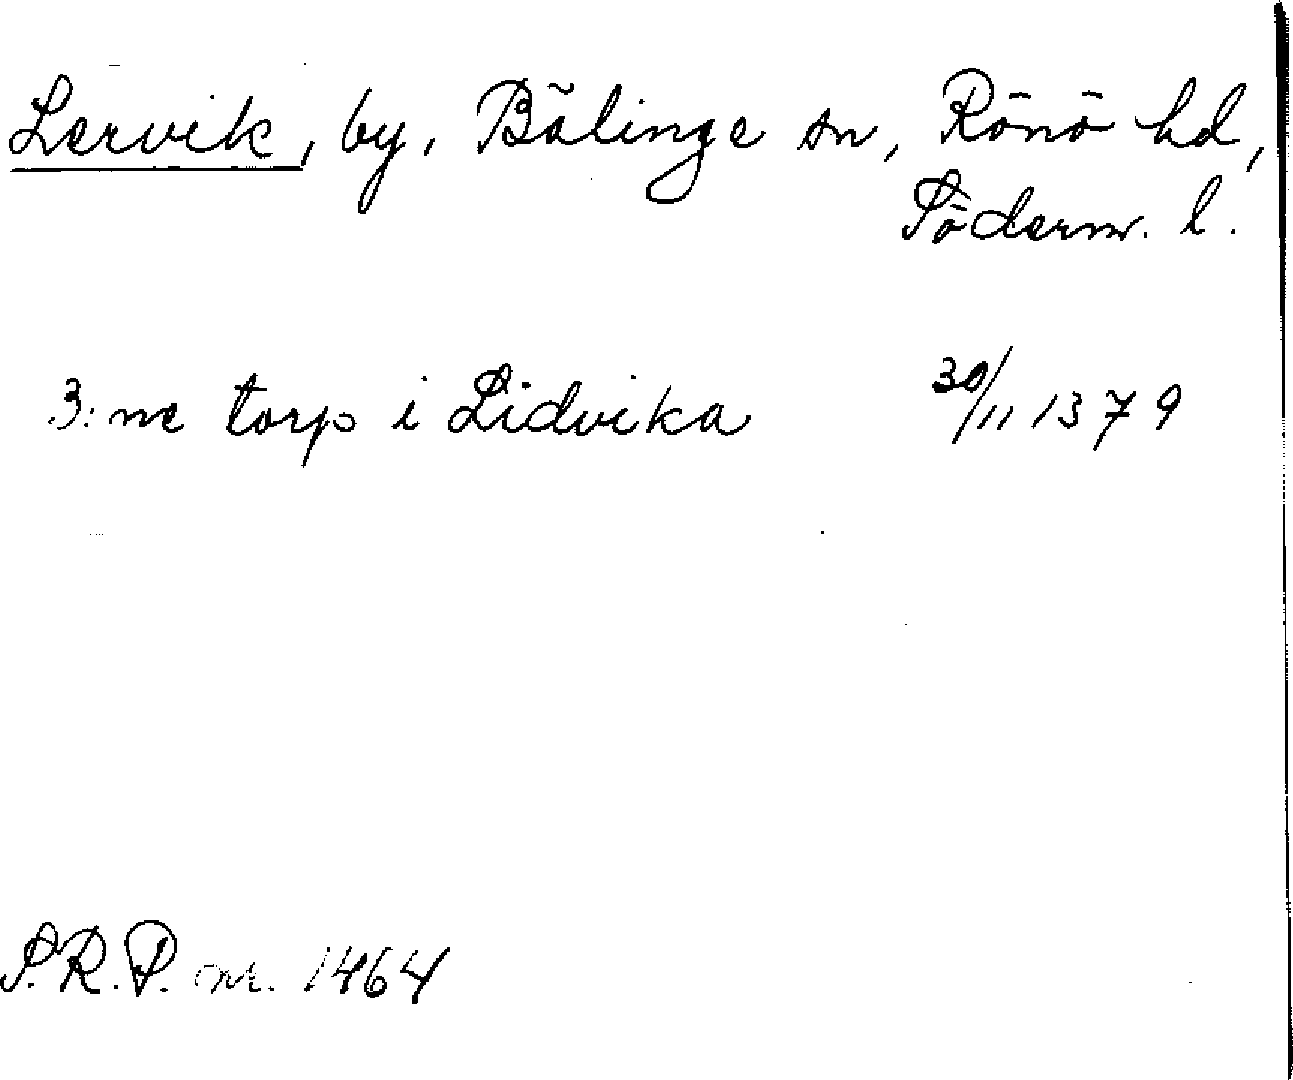 Lervik, by, Bälinge sn, Rönö hd,
Söderm. l.
3:ne torp i Lidvika 30/11 1379
S.R.P. nr. 1464